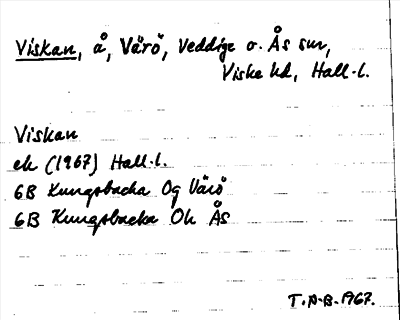 Viskan, å, Värö, Veddige o. Ås snr,
Viske hd, Hall.l.
Viskan
ek (1967) Hall.l.
6B Kungsbacka Og Värö
6B Kungsbacka Oh Ås
T.A-B. 1967.